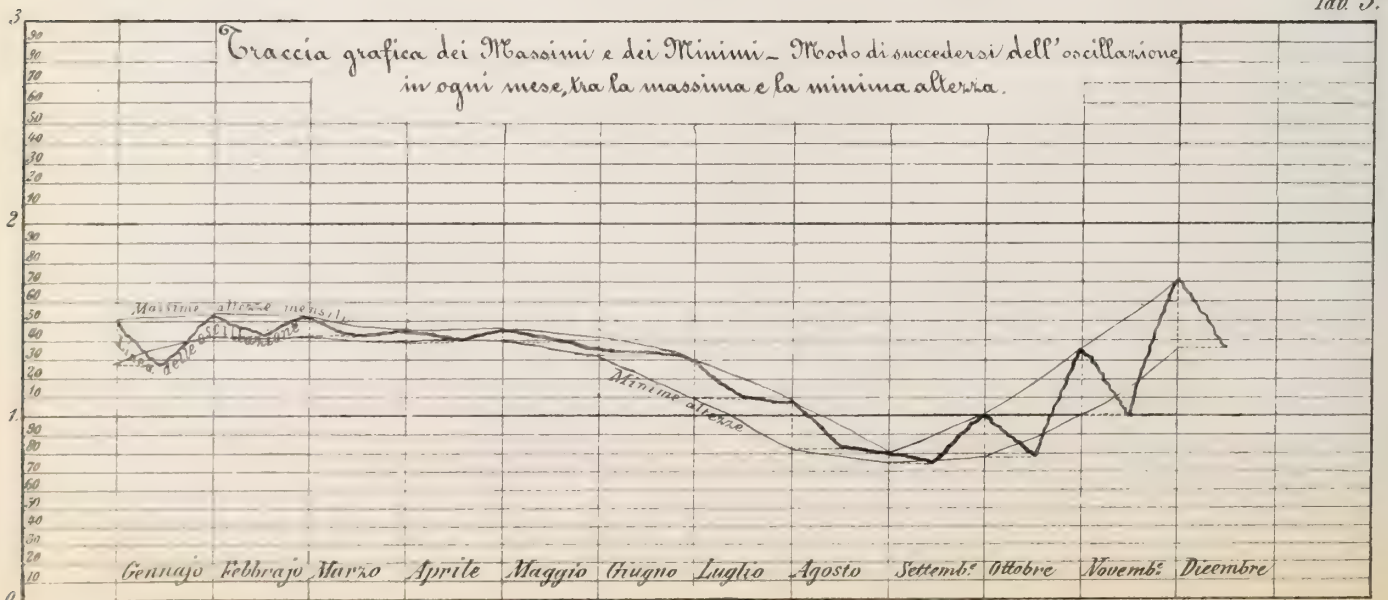 Tav. 3.
Traccia grafica dei Massimi e dei Minimi – Modo di succedersi dell'oscillazione
in ogni mese, tra la massima e la minima altezza.
3
90
80
70
60
50
40
30
20
10
2
90
80
70
60
50
40
30
20
10
1
90
80
70
60
50
40
30
20
10
0
Massime altezze mensili
Linea delle oscillazione
Minime altezze
Gennajo Febbrajo Marzo Aprile Maggio Giugno Luglio Agosto Settemb.e Ottobre Novemb.e Dicembre